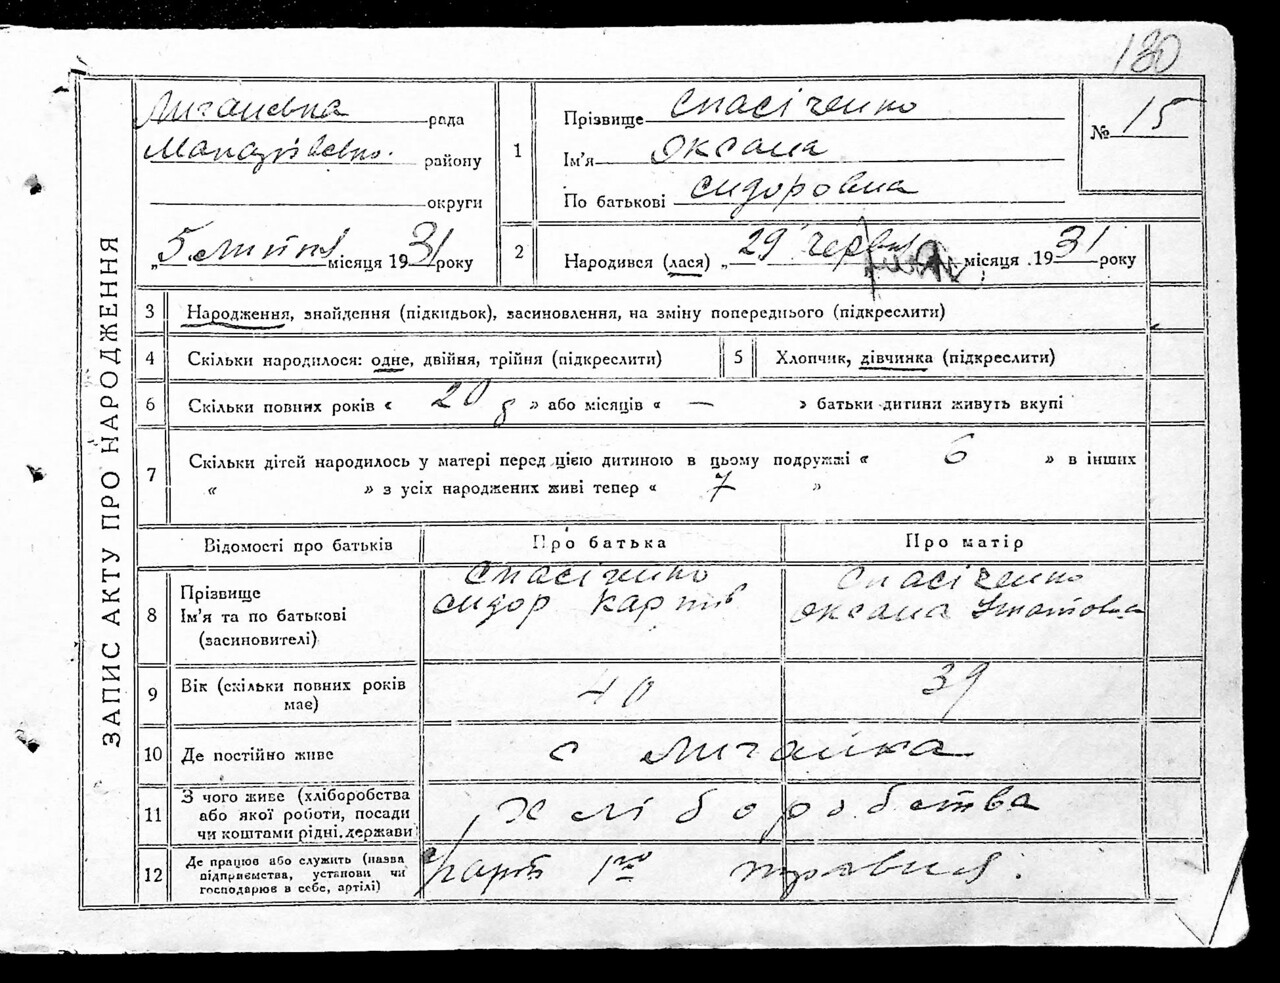 130
ЗАПИС АКТУ ПРО НАРОДЖЕННЯ
рада
району
округи
„5 липня місяця 1931 року
1
Прізвище Спасіченко
Ім'я Оксана
По батькові Сидоровна
№ 15
2
Народився (лася) „29 червня місяця 1931 року
3 Народження, знайдення (підкидьок), засиновлення, на зміну попереднього (підкреслити)
4 Скільки народилося: одне, двійня, трійня (підкреслити)
5 Хлопчик, дівчинка (підкреслити)
6 Скільки повних років « 20 » або місяців « — » батьки дитини живуть вкупі
7 Скільки дітей народилось у матері перед цією дитиною в цьому подружжі « 6 » в інших
« » з усіх народжених живі тепер « 7 »
Відомості про батьків Про батька Про матір
8 Прізвище
Ім'я та по батькові
(засиновителі)
Спасіченко
Сидор Карпів
Спасіченко
Оксана
9 Вік (скільки повних років
має)
40 39
10 Де постійно живе с
11 З чого живе (хліборобства
або якої роботи, посади
чи коштами рідні, держави
хліборобства
12 Де працює або служить (назва
підприємства, установи чи
господарює в себе, артілі)
1го травня.